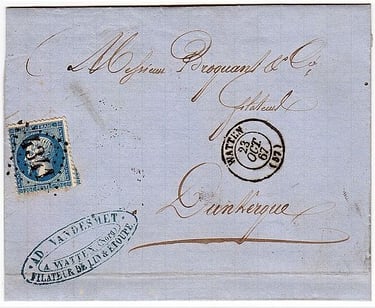 Messieurs Broquant & Cie
filateurs
WATTEN
23
OCT
67
(57)
Dunkerque
AD. VANDESMET
A WATTEN (Nord)
FILATEUR DE LIN & ETOUPE